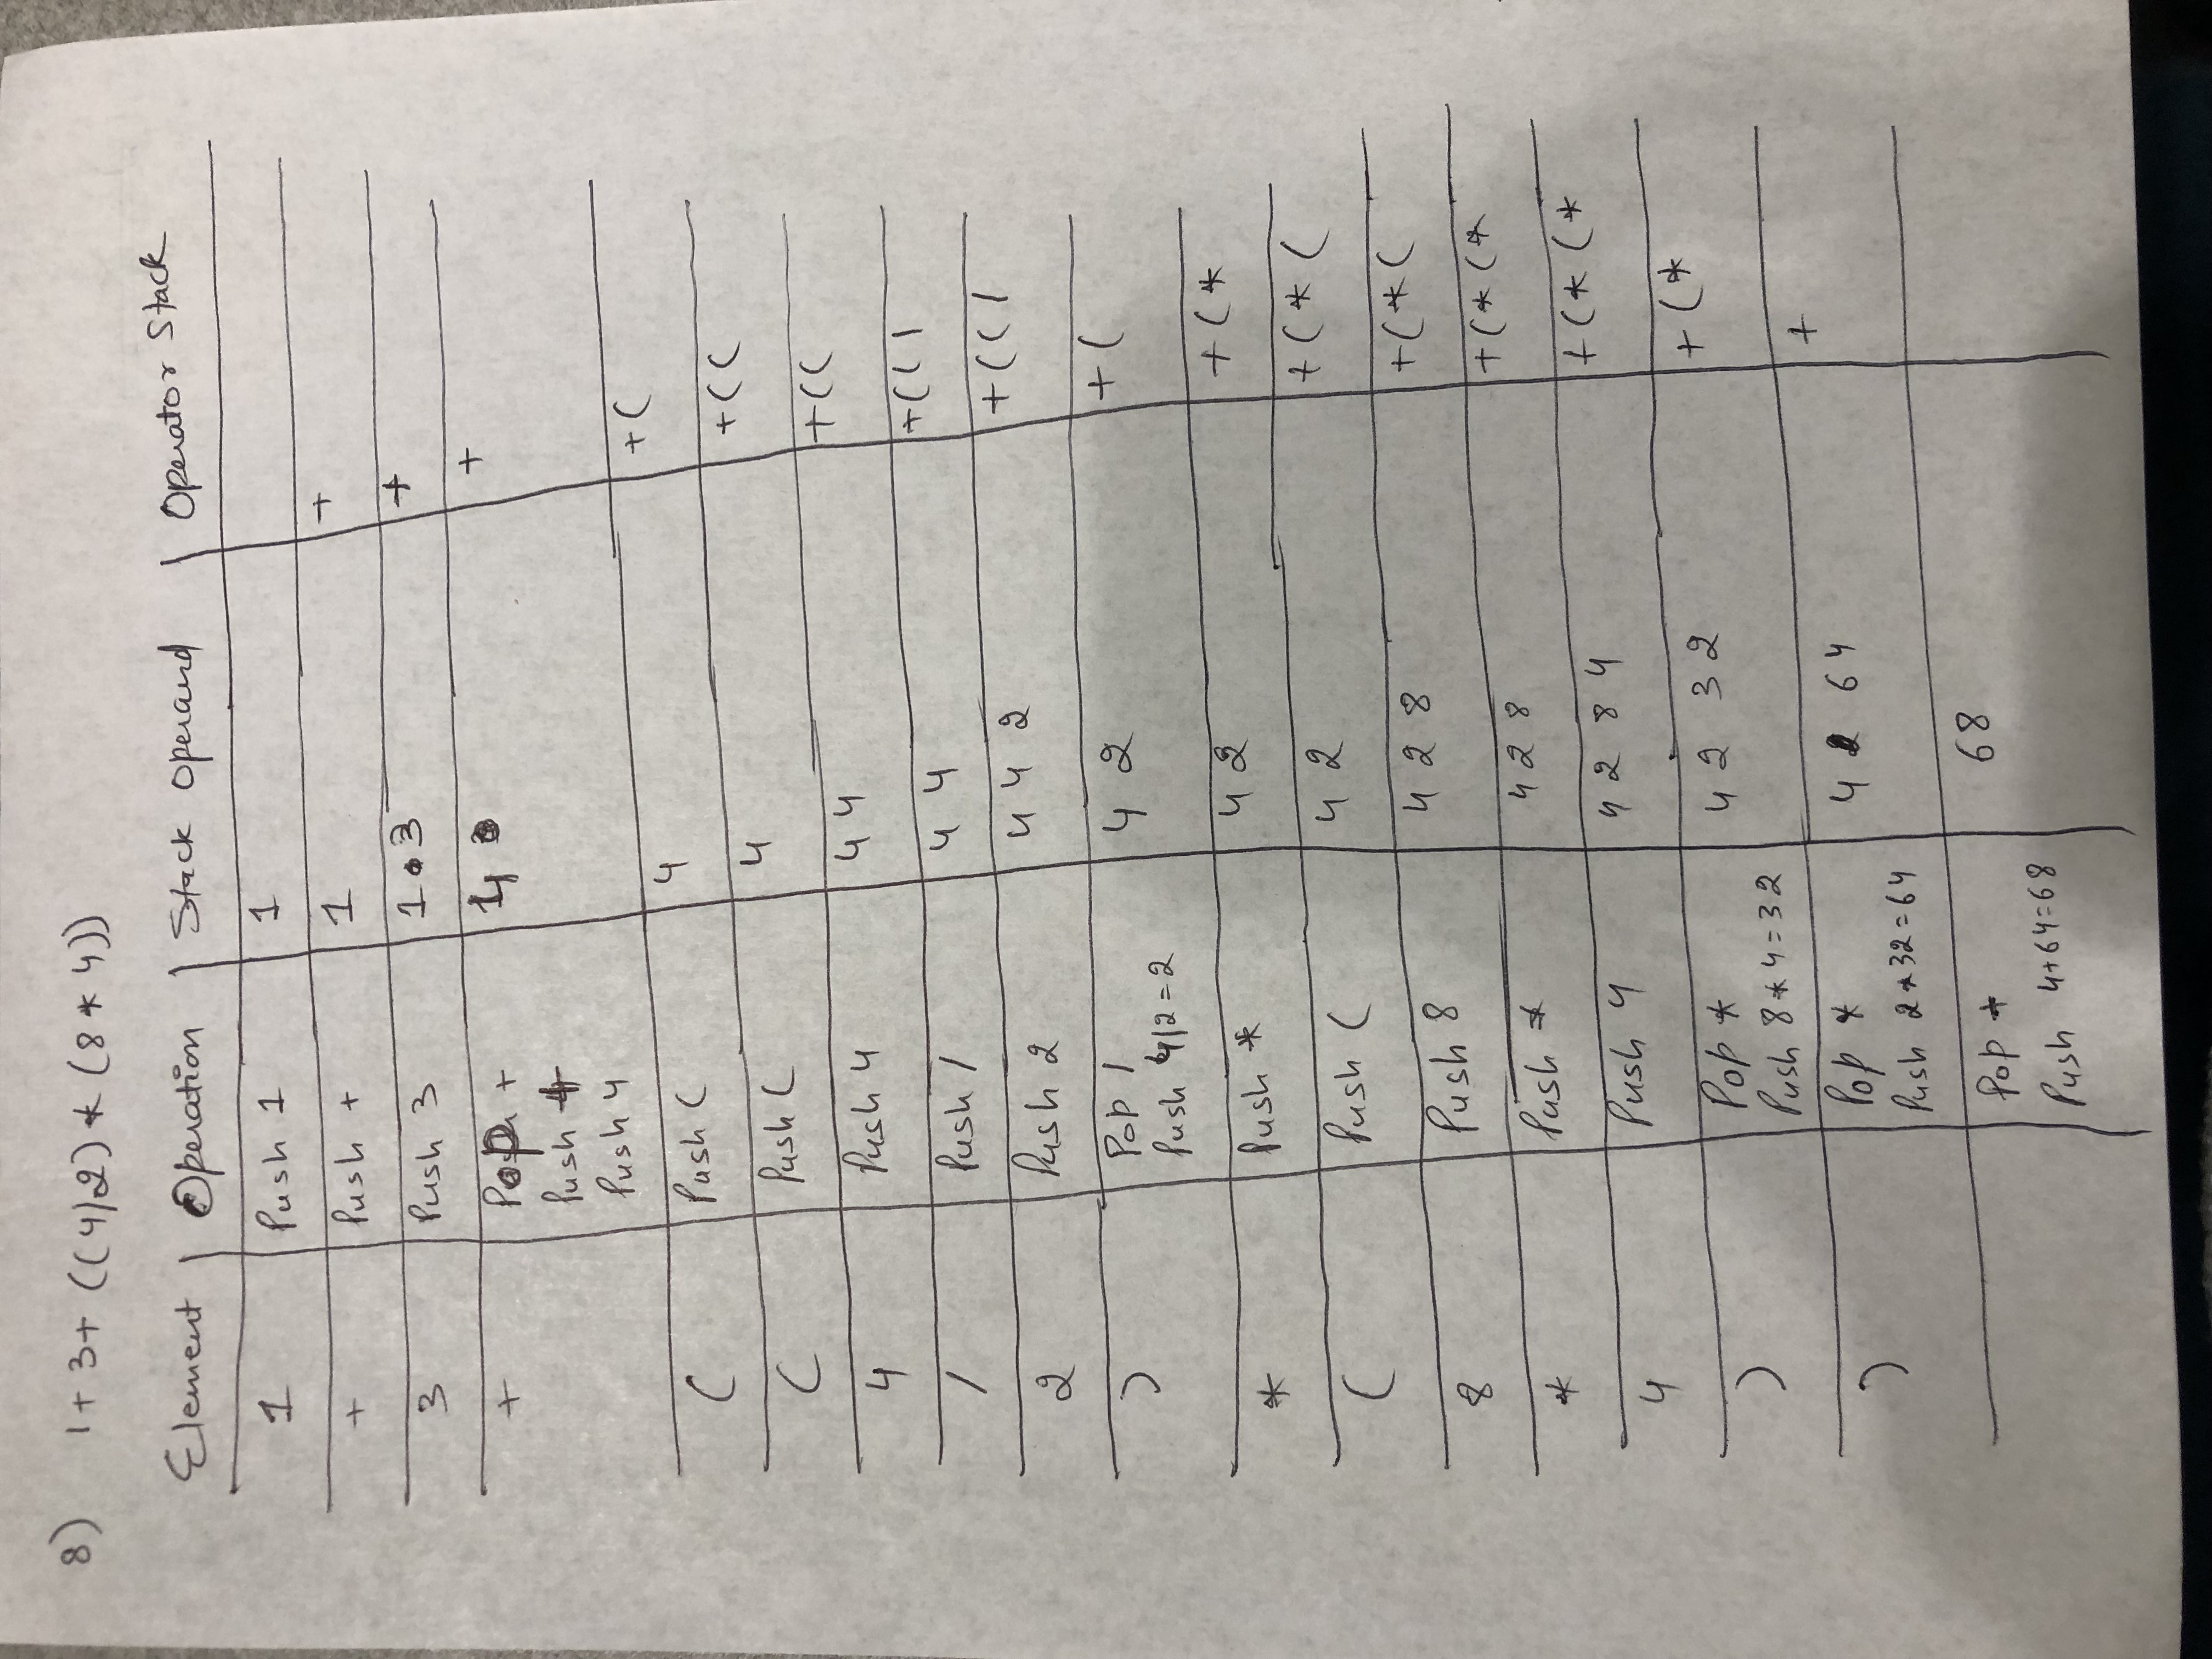 8) 1+3+((4/2)*(8*4))
Element Operation Stack Operand Operator Stack
1 Push 1 1
+ Push + 1 +
3 Push 3 1 3 +
+ Pop + 4 +
Push +
Push 4
( Push ( 4 +(
( Push ( 4 +((
4 Push 4 4 4 +((
/ Push / 4 4 +((/
2 Push 2 4 4 2 +((/
) Pop / 4 2 +(
Push 4/2=2
* Push * 4 2 +(*
( Push ( 4 2 +(*(
8 Push 8 4 2 8 +(*(
* Push * 4 2 8 +(*(*
4 Push 4 4 2 8 4 +(*(*
) Pop * 4 2 32 +(*
Push 8*4=32
) Pop * 4 64 +
Push 2*32=64
Pop + 68
Push 4+64=68